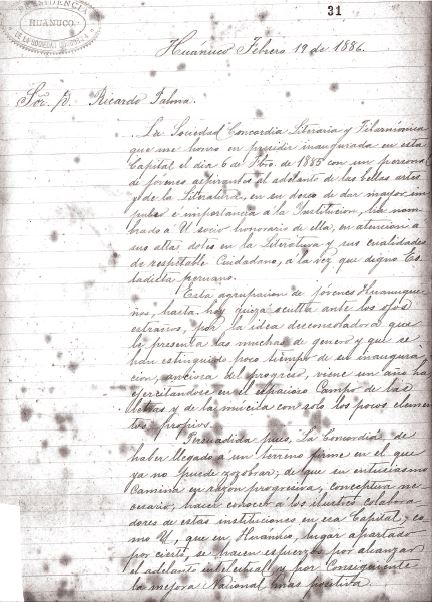 PRESIDENCIA
HUANUCO.
DE LA SOCIEDAD
31
Huánuco Febrero 19 de 1886.
Sor. D. Ricardo Palma.
La Sociedad "Concordia Literaria y Filarmónica
que me honro en presidir inaugurada en esta
Capital el dia 6 de Sbro. de 1885 con un personal
de jóvenes aspirantes al adelanto de las bellas artes
y de la Literatura, en su deseo de dar mayor im
pulso é importancia á la Institucion, ha nom
brado á U. socio honorario de ella, en atencion á
sus altas dotes en la Literatura y sus cualidades
de respetable Ciudadano, á la vez que digno Es
tadista peruano.
Esta agrupacion de jóvenes Huanuque
ños, hasta hoy quiza oculta ante los ojos
extraños, por la idea desconsoladora que
le presenta las muchas de genero y que se
han estinguido poco tiempo de su inaugura
cion, ansiosa del progreso, viene un año ha
ejercitandose en el espacioso Campo de las
Letras y de la música con solo los pocos elemen
tos propios.
Persuadida pues, "La Concordia" de
haber llegado á un terreno firme en el que
ya no puede zozobrar; de que su entusiasmo
camina en razon progresiva, conceptua ne
cesario, hacer conocer á los ilustres colabora
dores de estas instituciones en esa Capital, co
mo U., que en Huánuco, lugar apartado
por cierto, se hacen esfuerzos por alcanzar
el adelanto intelectual y por Consiguiente
la mejora Nacional mas positiva.